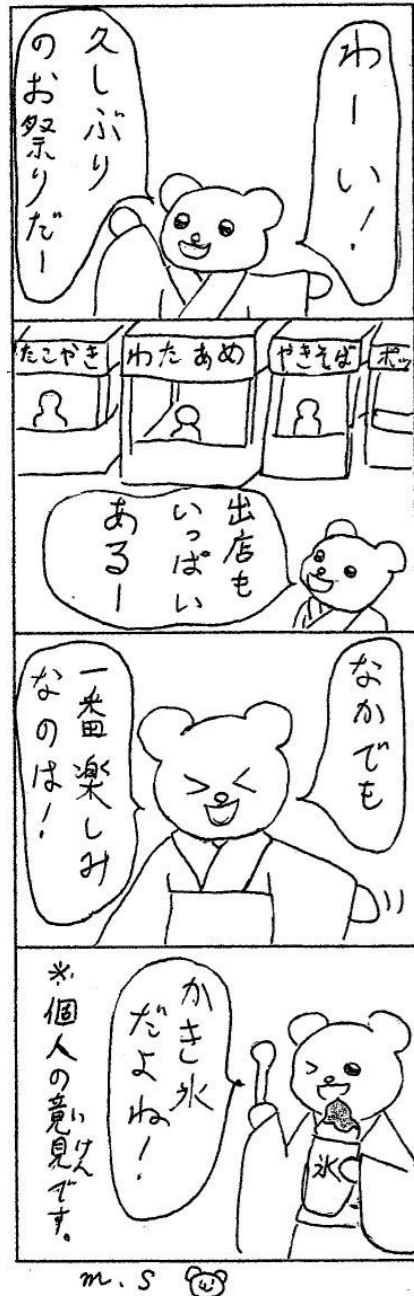 わーい!
久しぶり
のお祭りだー
たこやき
わたあめ
やきそば
ポッ
出店も
いっぱい
あるー
なかでも
一番楽しみ
なのは!
かき氷
だよね!
氷
※個人の意見です。
いけん
m.s